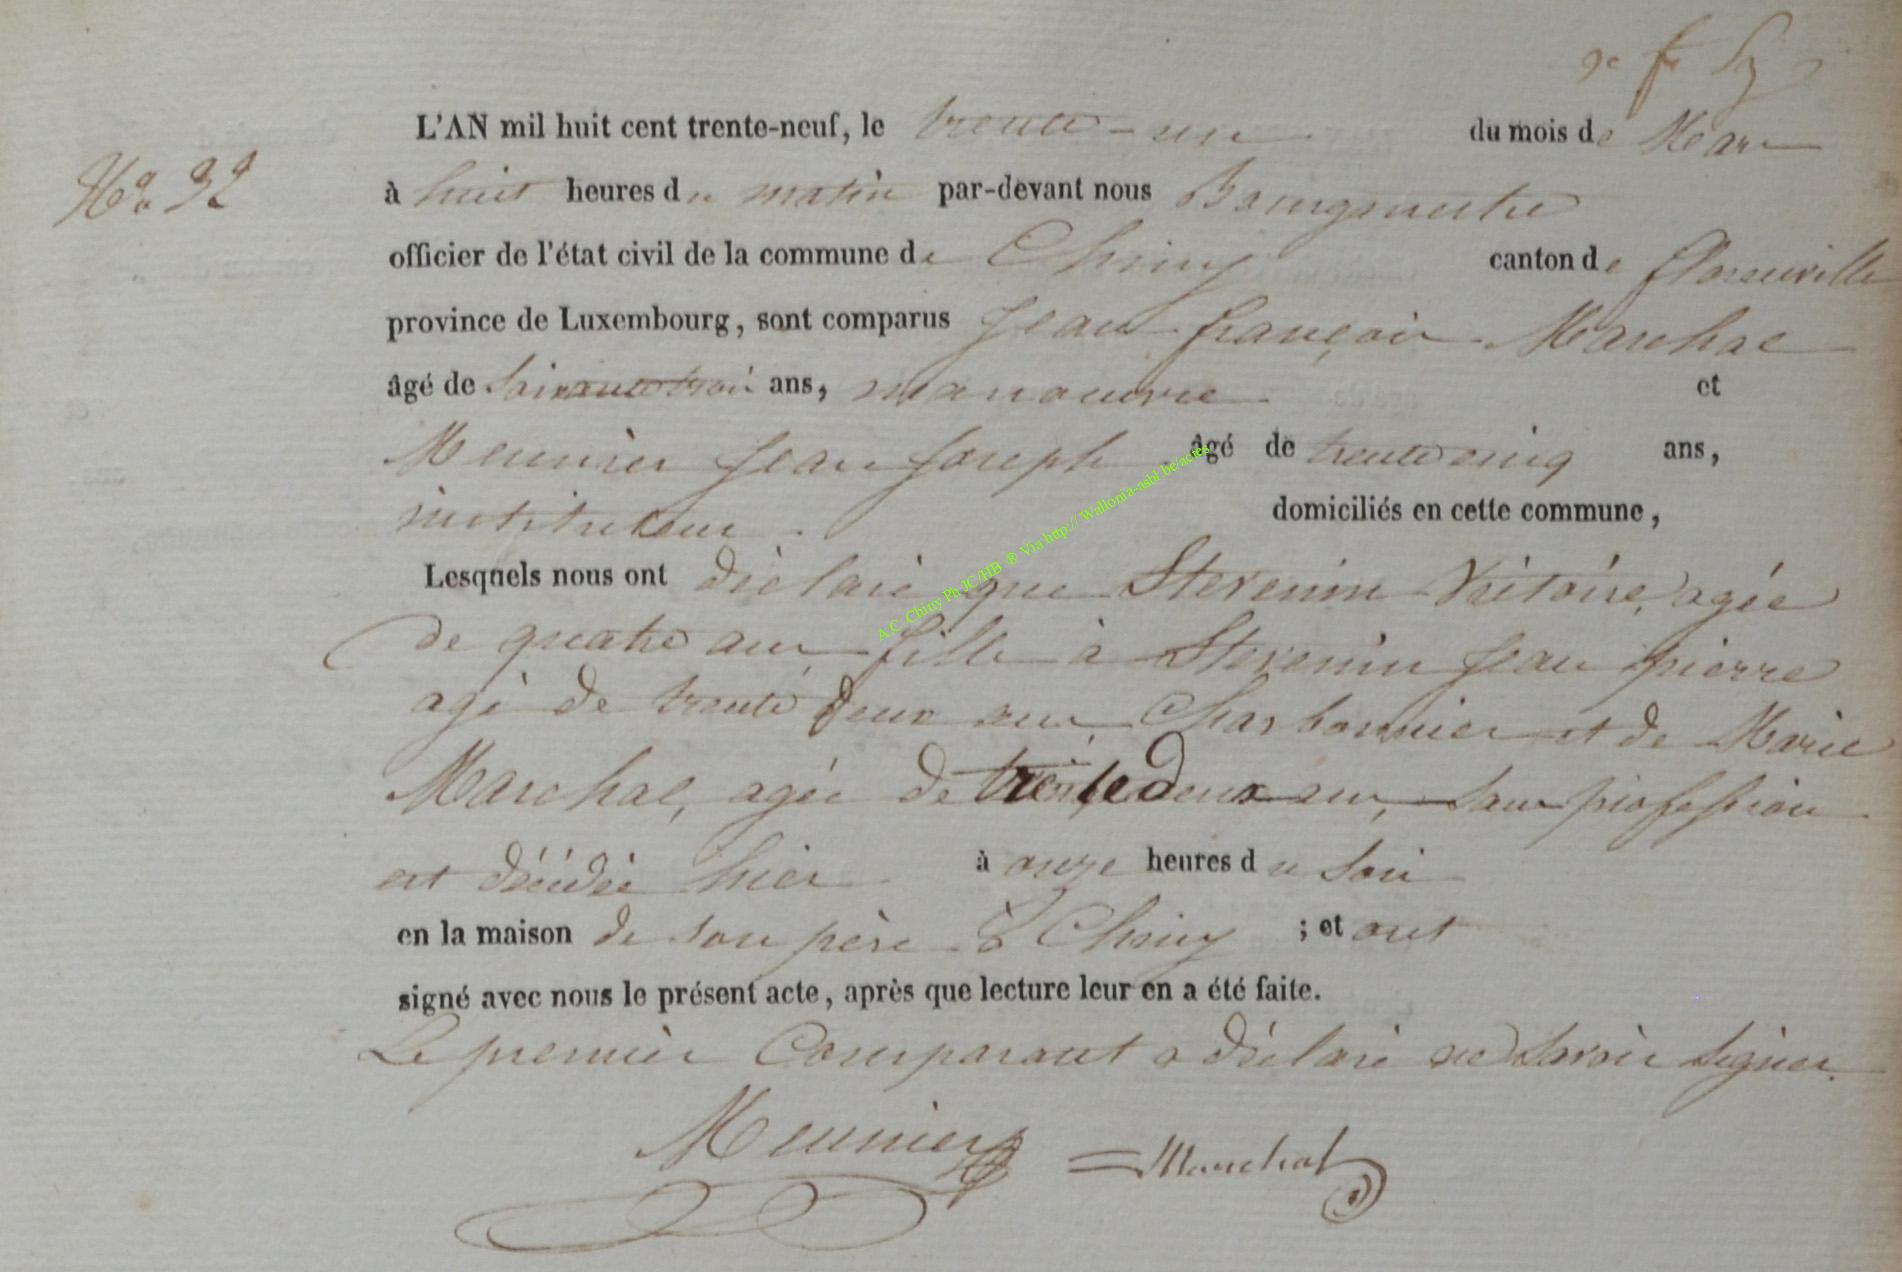 L'AN mil huit cent trente-neuf, le trente-un du mois de Mars
No. 32
à huit heures du matin par-devant nous Bourgmestre
officier de l'état civil de la commune de Chiny canton de florenville
province de Luxembourg, sont comparus Jean françois Marchal
âgé de Soixante trois ans, manouvre et
Meunier Jean Joseph âgé de trente cinq ans,
instituteur. domiciliés en cette commune,
Lesquels nous ont déclaré que Stevenin Victoire, agée
de quatre ans, fille à Stevenin Jean pierre
agé de trente deux ans, Charbonnier et de Marie
Marchal, agée de trente deux ans, Sans profession
est décédée hier à onze heures du Soir
en la maison de son père à Chiny ; et ont
signé avec nous le présent acte, après que lecture leur en a été faite.
Le premier Comparant a déclaré ne Savoir Signer.
Meunier Marchal
A.C. Chiny Ph JC/HB ® Via http:// Wallonia-asbl.be/actes